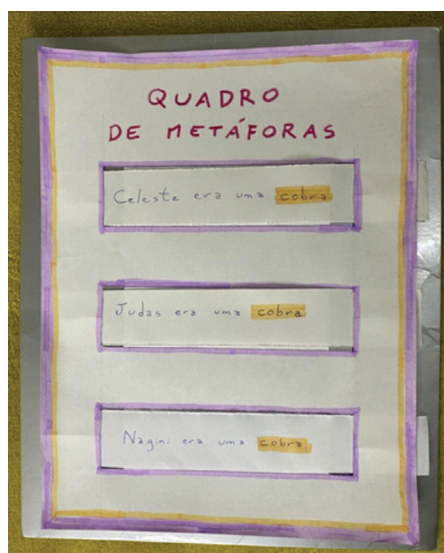 QUADRO
DE METÁFORAS
Celeste era uma cobra
Judas era uma cobra
Nagini era uma cobra